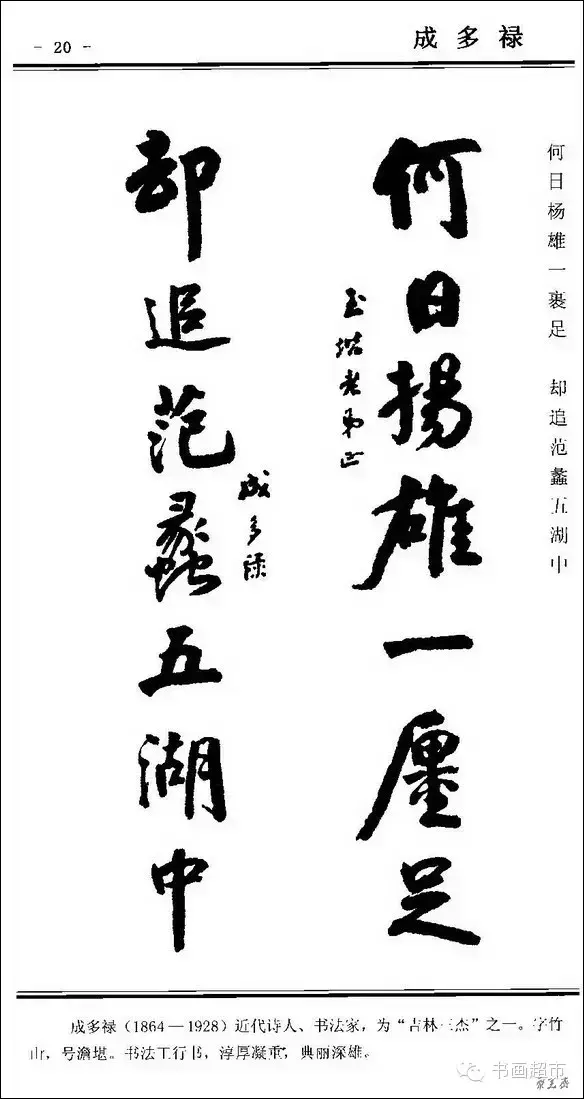 - 20 -
成多禄
何日杨雄一裹足 却追范蠡五湖中
何日揚雄一廛足
玉堦老弟正
却追范蠡五湖中
成多祿
成多禄(1864—1928)近代诗人、书法家,为“吉林三杰”之一。字竹
山,号澹堪。书法工行书,淳厚凝重,典丽深雄。
书画超市